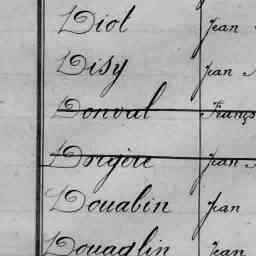 Diot Jean
Disy Jean
Donval Franço
Drigire Jean
Douabin Jean
Douaglin Jean